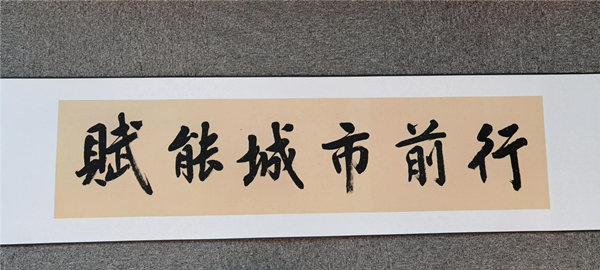 賦能城市前行